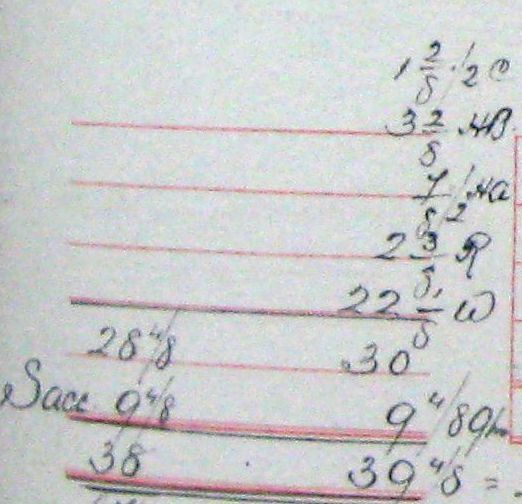 1 2/8 1/2 C
3 2/8 AB
7/8 1/2 Aa
2 3/8 R
22 1/8 W
28 4/8 30
Sacc 9 4/8 9 4/8
38 39 4/8 =